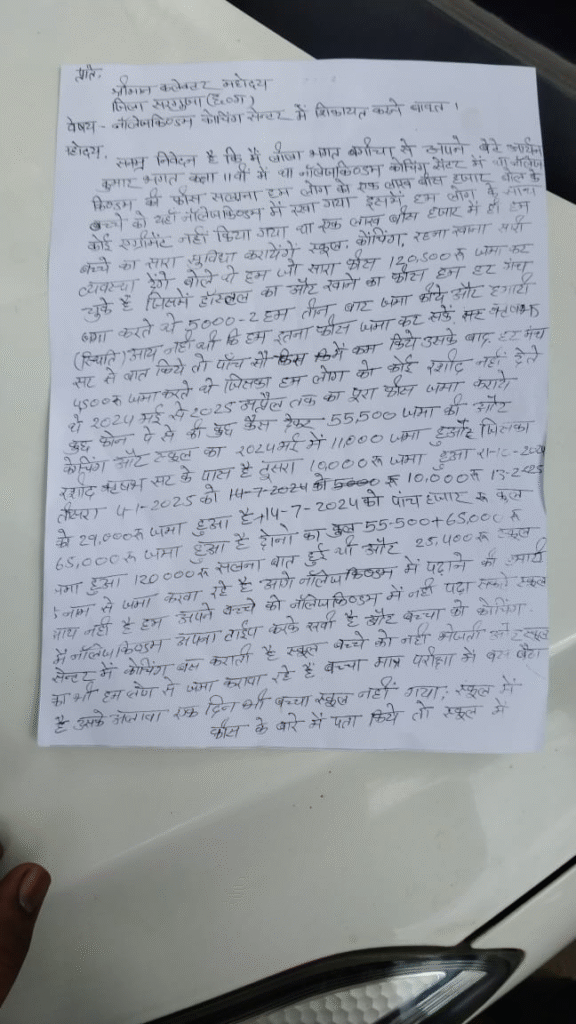 प्रति,
श्रीमान कलेक्टर महोदय
जिला सरगुजा (छ०ग)
विषय - नॉलेजकिंग्डम कोचिंग सेन्टर में शिकायत करने बावत।
महोदय,
सनम्र निवेदन है कि मैं जीजा भगत बगीचा से अपने बेटे आर्यन
कुमार भगत कक्षा 11वीं में था नॉलेजकिंग्डम कोचिंग सेंटर में था नॉलेज
किंग्डम की फीस सलाना हम लोग को एक लाख बीस हजार बोल के
बच्चे को यहाँ नॉलेजकिंग्डम में रखा गया इसमें हम लोग के साथ
कोई एग्रीमेंट नहीं किया गया था एक लाख बीस हजार में ही हम
बच्चे का सारा सुविधा करायेंगे स्कूल, कोचिंग, रहना खाना सभी
व्यवस्था देंगे बोले थे हम जो सारा फीस 120,500 रू जमा कर
चुके है जिसमें हॉस्टल का और खाने का फीस हम हर मंथ
जमा करते थे 5000-2 हम तीन बार जमा किये और हमारी
(स्थिति) आय नहीं थी कि हम इतना फीस जमा कर सकें सर
सर से बात किये तो पाँच सौ कम किये उसके बाद हर मंथ
4500 रू जमा करते थे जिसका हम लोग को कोई रशीद नहीं देते
थे 2024 मई से 2025 अप्रैल तक का पूरा फीस जमा कराये
कुछ फोन पे से की कुछ कैस देकर 55,500 जमा की और
कोचिंग और स्कूल का 2024 मई में 11,000 जमा हुआ और जिसका
रशीद ऋषभ सर के पास है दूसरा 10,000 रू जमा हुआ
तीसरा 4-1-2025 को 14-7-2024 को 5000 रू 10,000 रू
को 29,000 रू जमा हुआ है, 14-7-2024 को पांच हजार रू कुल
65,000 रू जमा हुआ है दोनों का कुल 55-500+65,000 रू
जमा हुआ 120000 रू सलना बात हुई थी और 25,400 रू स्कूल
के नाम से जमा करवा रहे है आगे नॉलेजकिंग्डम में पढ़ाने की हमारी
आय नहीं है हम अपने बच्चे को नॉलेजकिंग्डम में नहीं पढ़ा सकते स्कूल
में नॉलेजकिंग्डम अपना टाईप करके रखी है और बच्चा को कोचिंग
सेन्टर में कोचिंग बस कराती है स्कूल बच्चे को नहीं भेजती और स्कूल
का भी हम लोग से जमा करवा रहे हैं बच्चा मात्र परीक्षा में बस बैठा
है उसके अलावा एक दिन भी बच्चा स्कूल नहीं गया, स्कूल में
फीस के बारे में पता किये तो स्कूल में